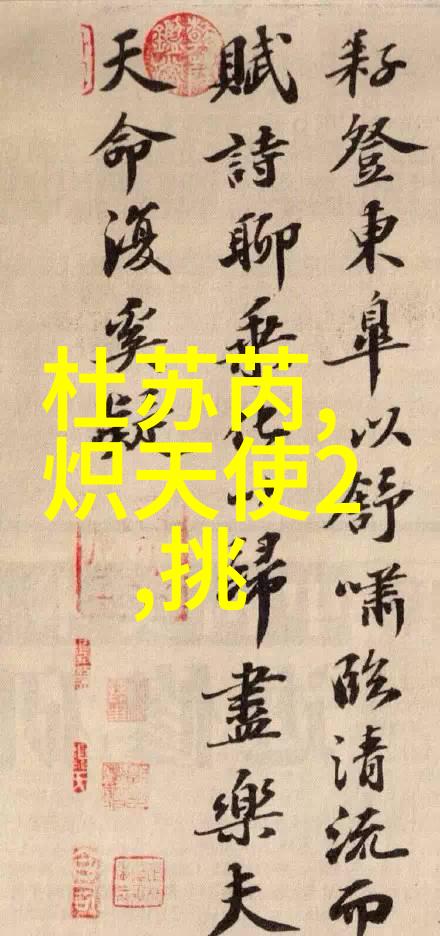 耔登東皐以舒嘯臨清流而
賦詩聊乘化以歸盡樂夫
天命復奚疑
杜苏芮,
炽天使2
,挑